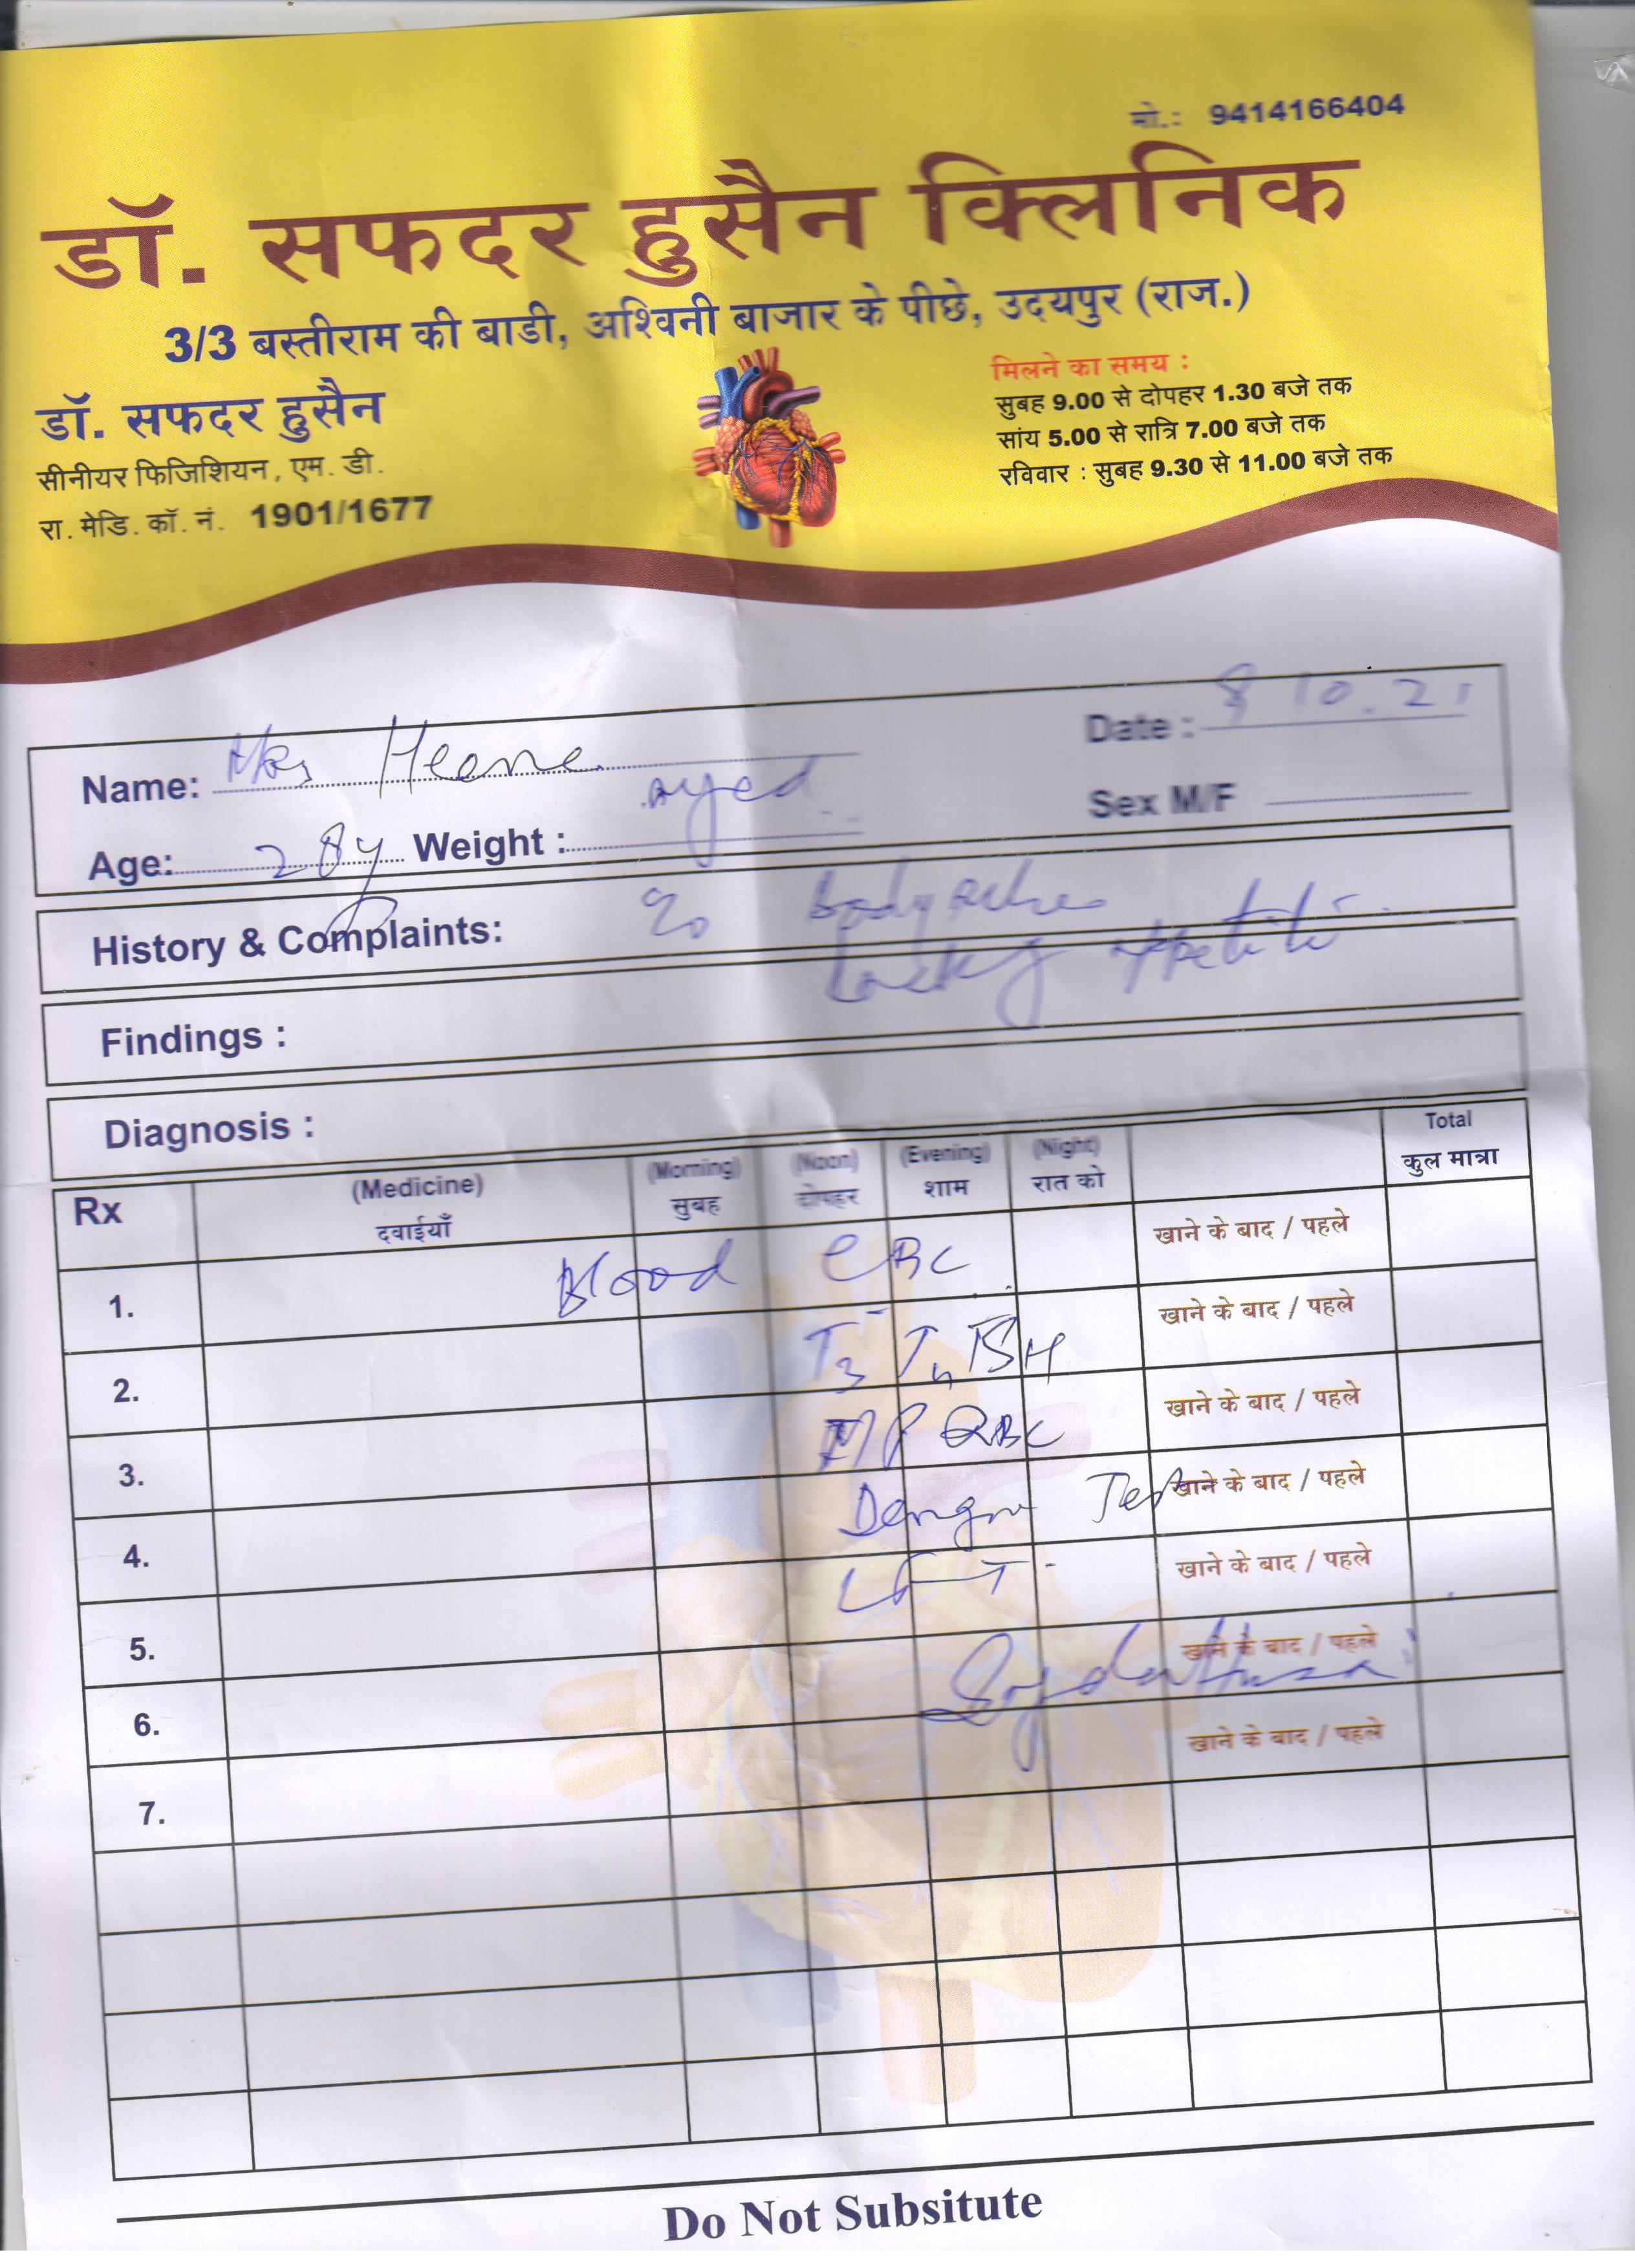 मो.: 9414166404
डॉ. सफदर हुसैन क्लिनिक
3/3 बस्तीराम की बाडी, अश्विनी बाजार के पीछे, उदयपुर (राज.)
डॉ. सफदर हुसैन
सीनीयर फिजिशियन, एम. डी.
रा. मेडि. कॉ. नं. 1901/1677
मिलने का समय :
सुबह 9.00 से दोपहर 1.30 बजे तक
सांय 5.00 से रात्रि 7.00 बजे तक
रविवार : सुबह 9.30 से 11.00 बजे तक
Name: Mrs Heena
Date : 8 10.21
Age: 28y Weight :
Sex M/F
History & Complaints: Bodyache
Appetite
Findings :
Diagnosis :
Rx (Medicine) (Morning) (Noon) (Evening) (Night) Total
दवाईयाँ सुबह दोपहर शाम रात को कुल मात्रा
खाने के बाद / पहले
1. Blood CBC
खाने के बाद / पहले
2. T3 T4 TSH
खाने के बाद / पहले
3. MP QBC
खाने के बाद / पहले
4. Dengue Test
खाने के बाद / पहले
5. LFT
खाने के बाद / पहले
6.
खाने के बाद / पहले
7.
Do Not Subsitute